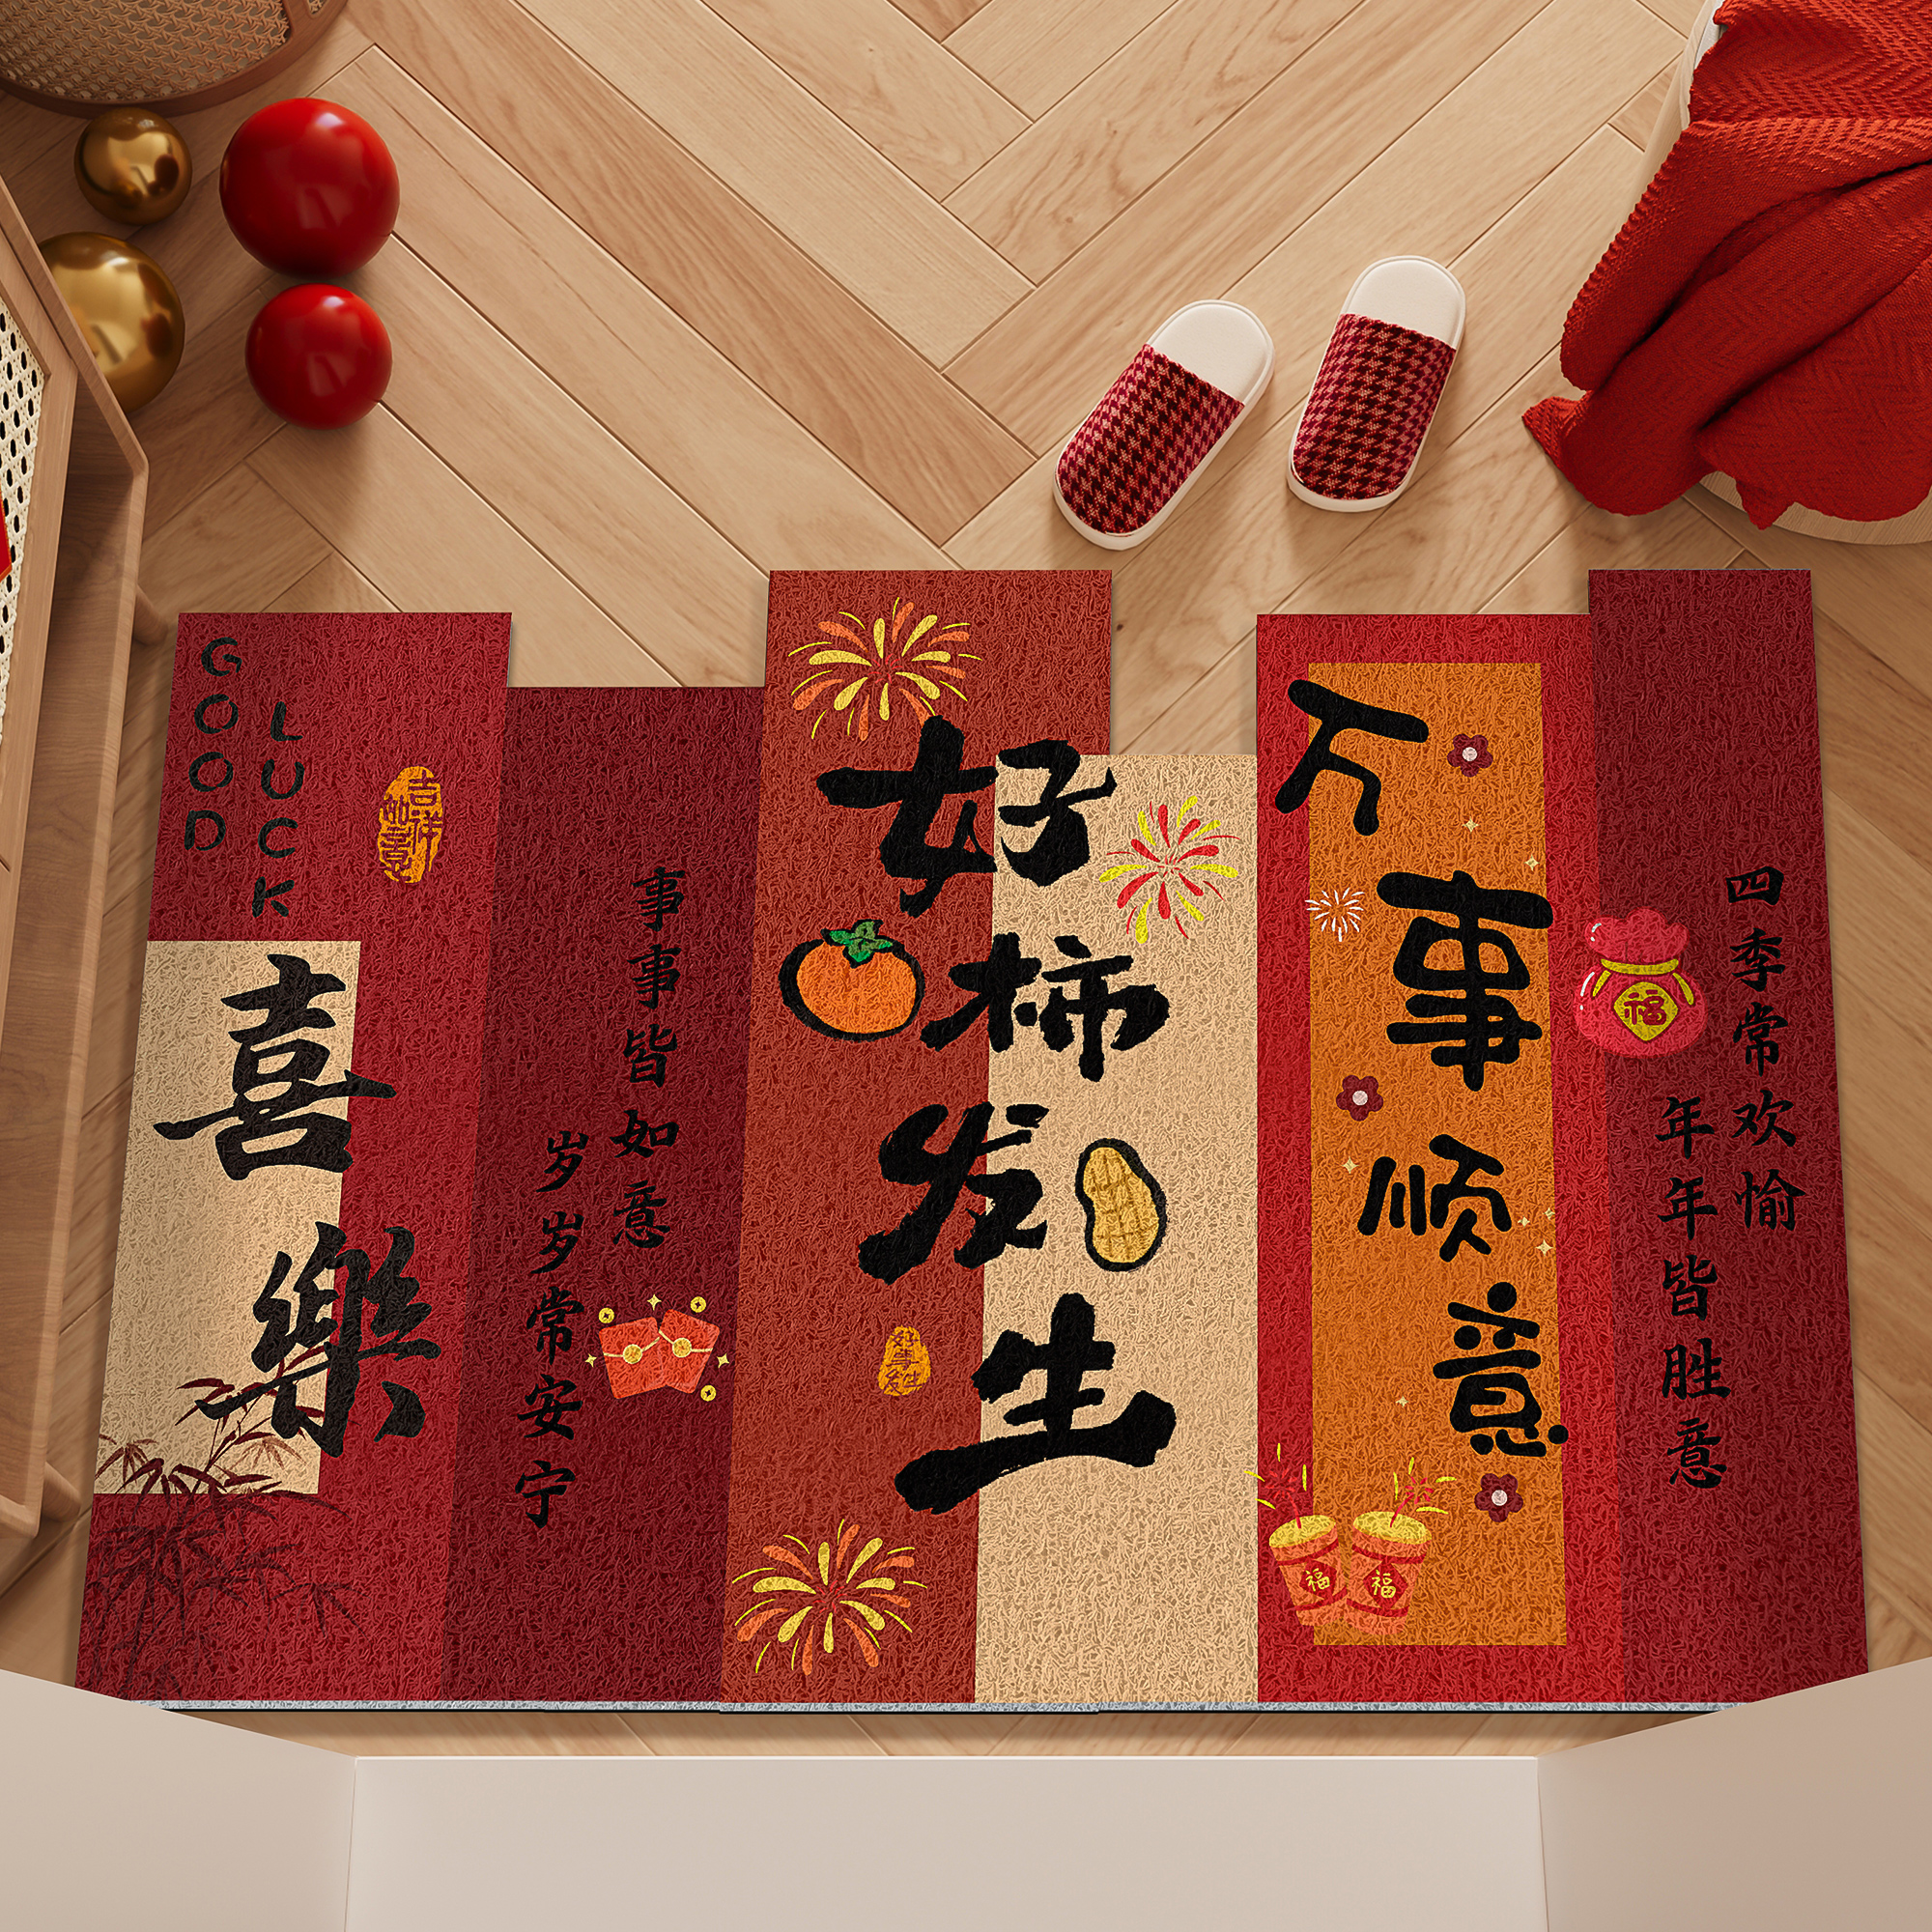 GOOD
LUCK
吉祥
如意
喜樂
事事皆如意
岁岁常安宁
好柿发生
万事顺意
福
福
福
四季常欢愉
年年皆胜意